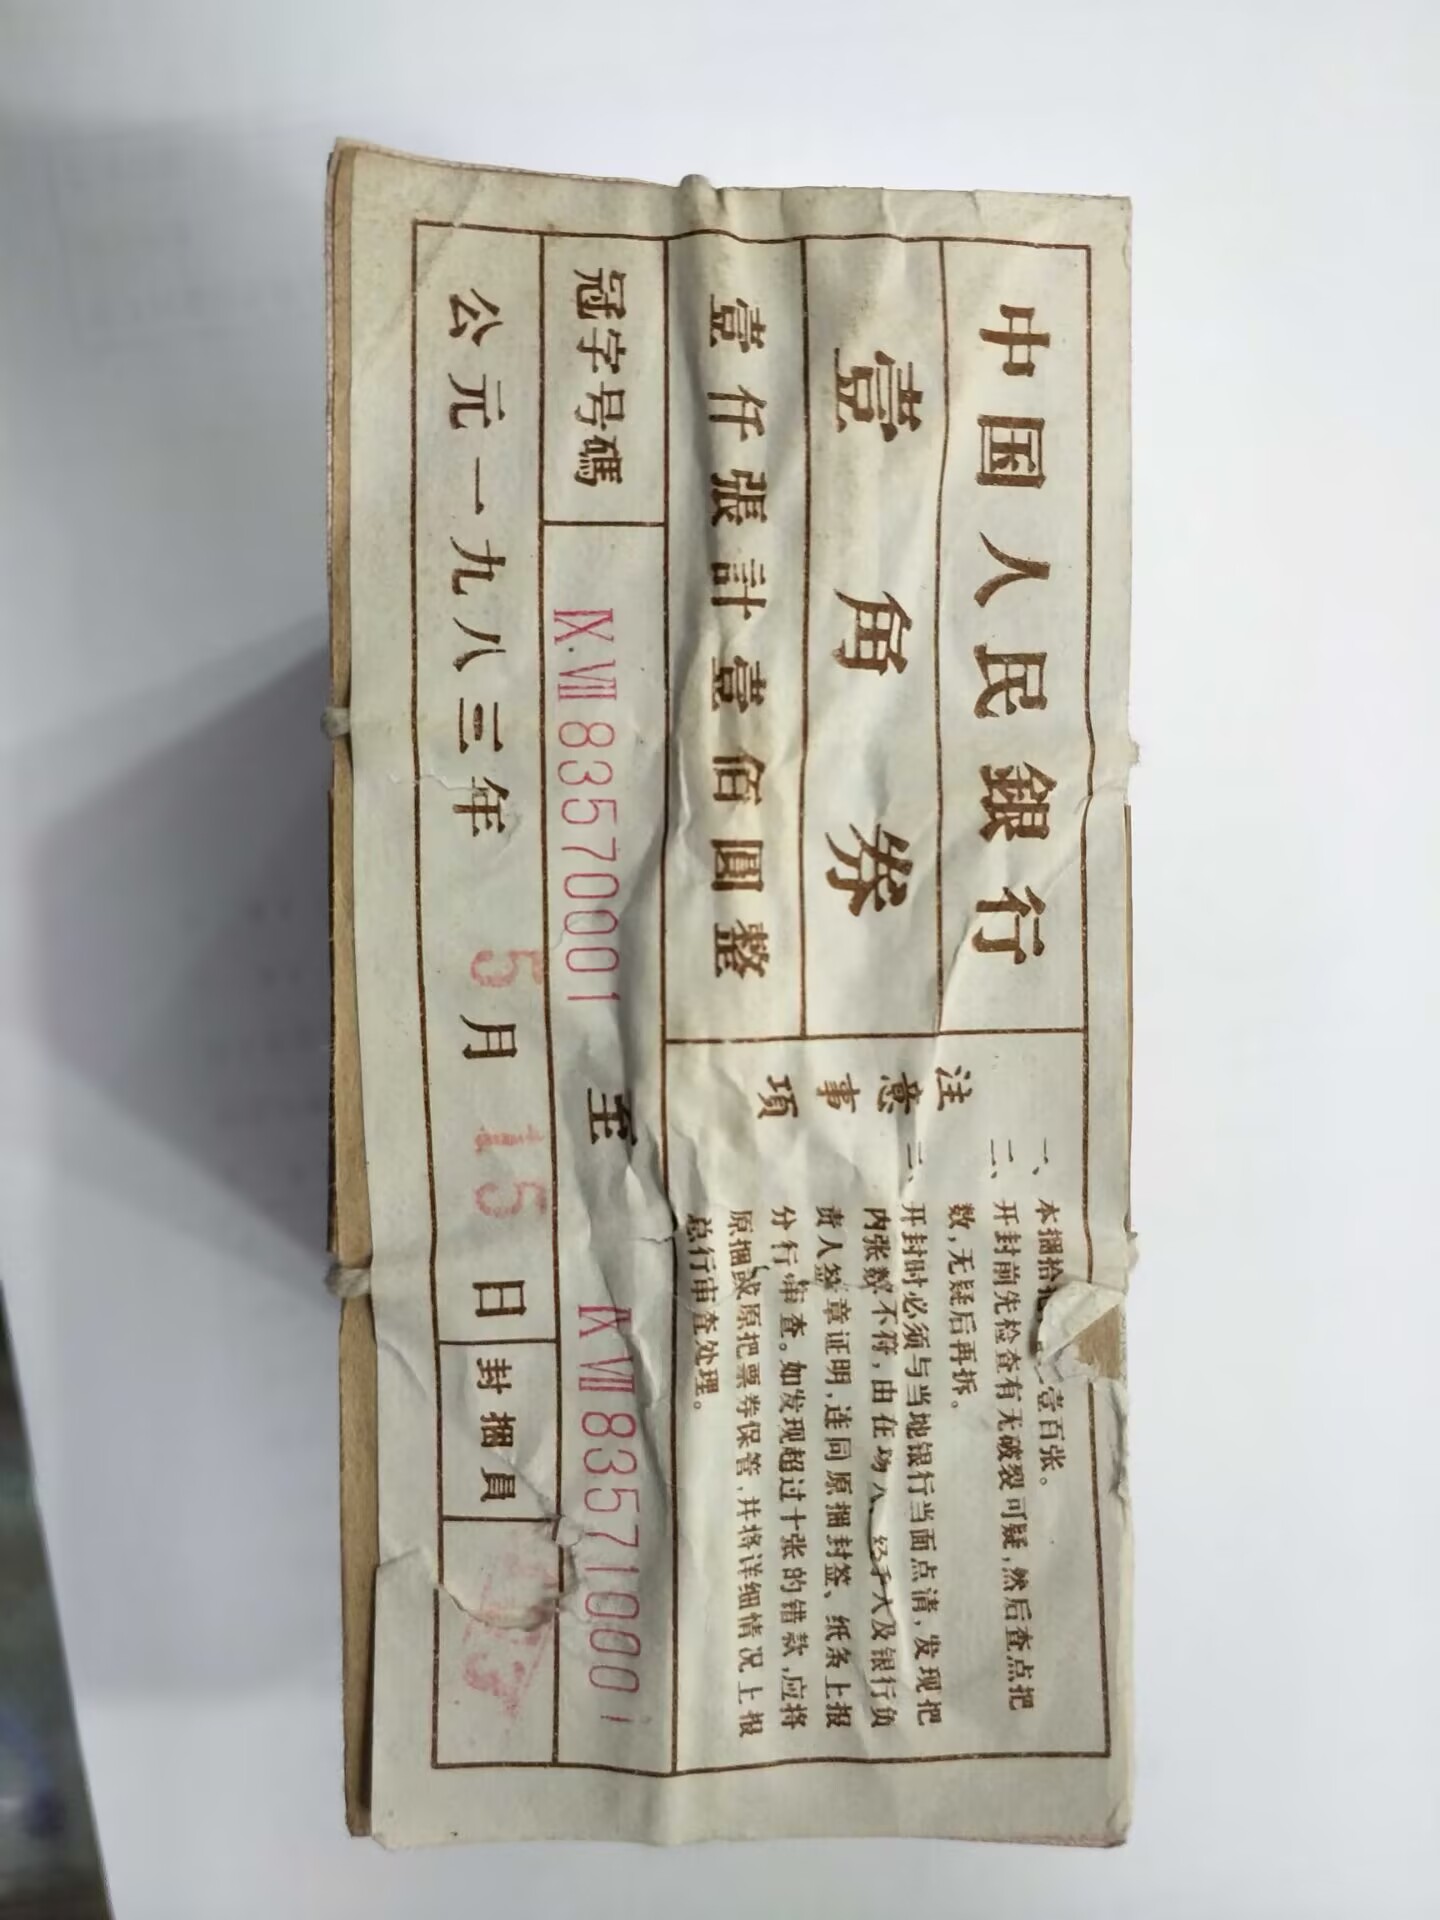 中国人民銀行
壹角券
壹仟張計壹佰圓整
冠字号碼 IX·VII 83570001 至 IX VII 83571000
公元一九八三年 5 月 15 日 封捆員
注意事項
一、本捆拾把 壹百张。
二、开封前先检查有无破裂可疑，然后查点把
数，无疑后再拆。
三、开封时必须与当地银行当面点清，发现把
内张数不符，由在场人、经手人及银行负
责人签章证明，连同原捆封签、纸条上报
分行审查。如发现超过十张的错款，应将
原捆或原把票券保管，并将详细情况上报
总行审查处理。